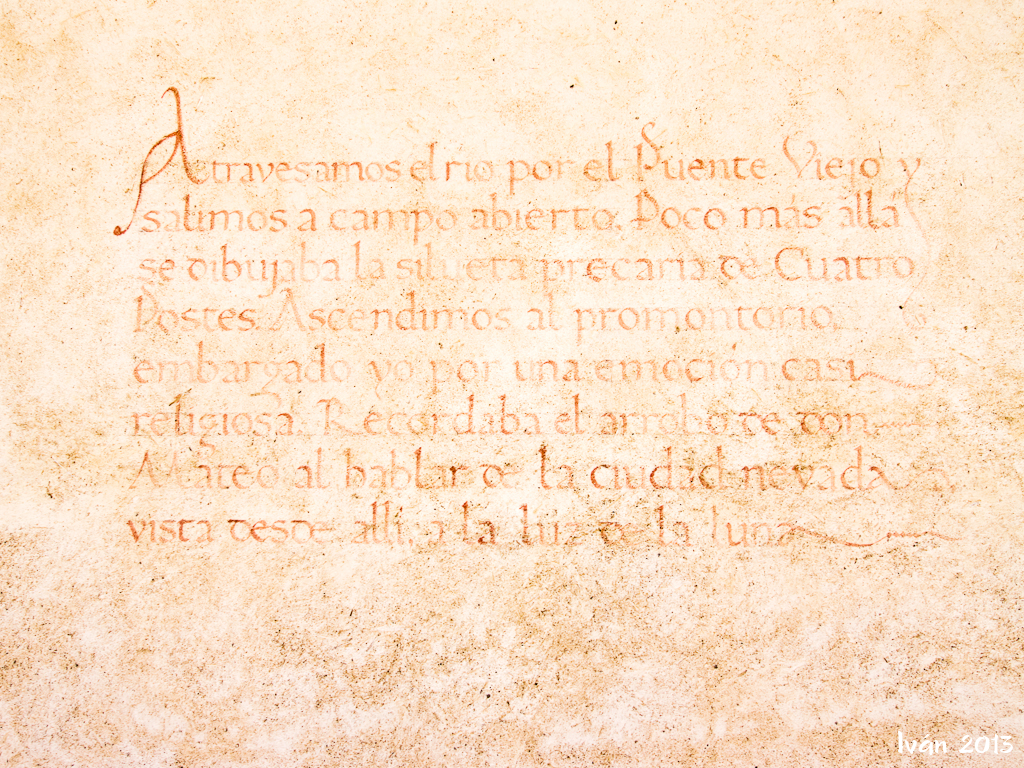 Atravesamos el rio por el Puente Viejo y
salimos a campo abierto. Poco más allá
se dibujaba la silueta precaria de Cuatro
Postes. Ascendimos al promontorio,
embargado yo por una emoción casi
religiosa. Recordaba el arrobo de don
Mateo al hablar de la ciudad nevada
vista desde allí, a la luz de la luna
Iván 2013